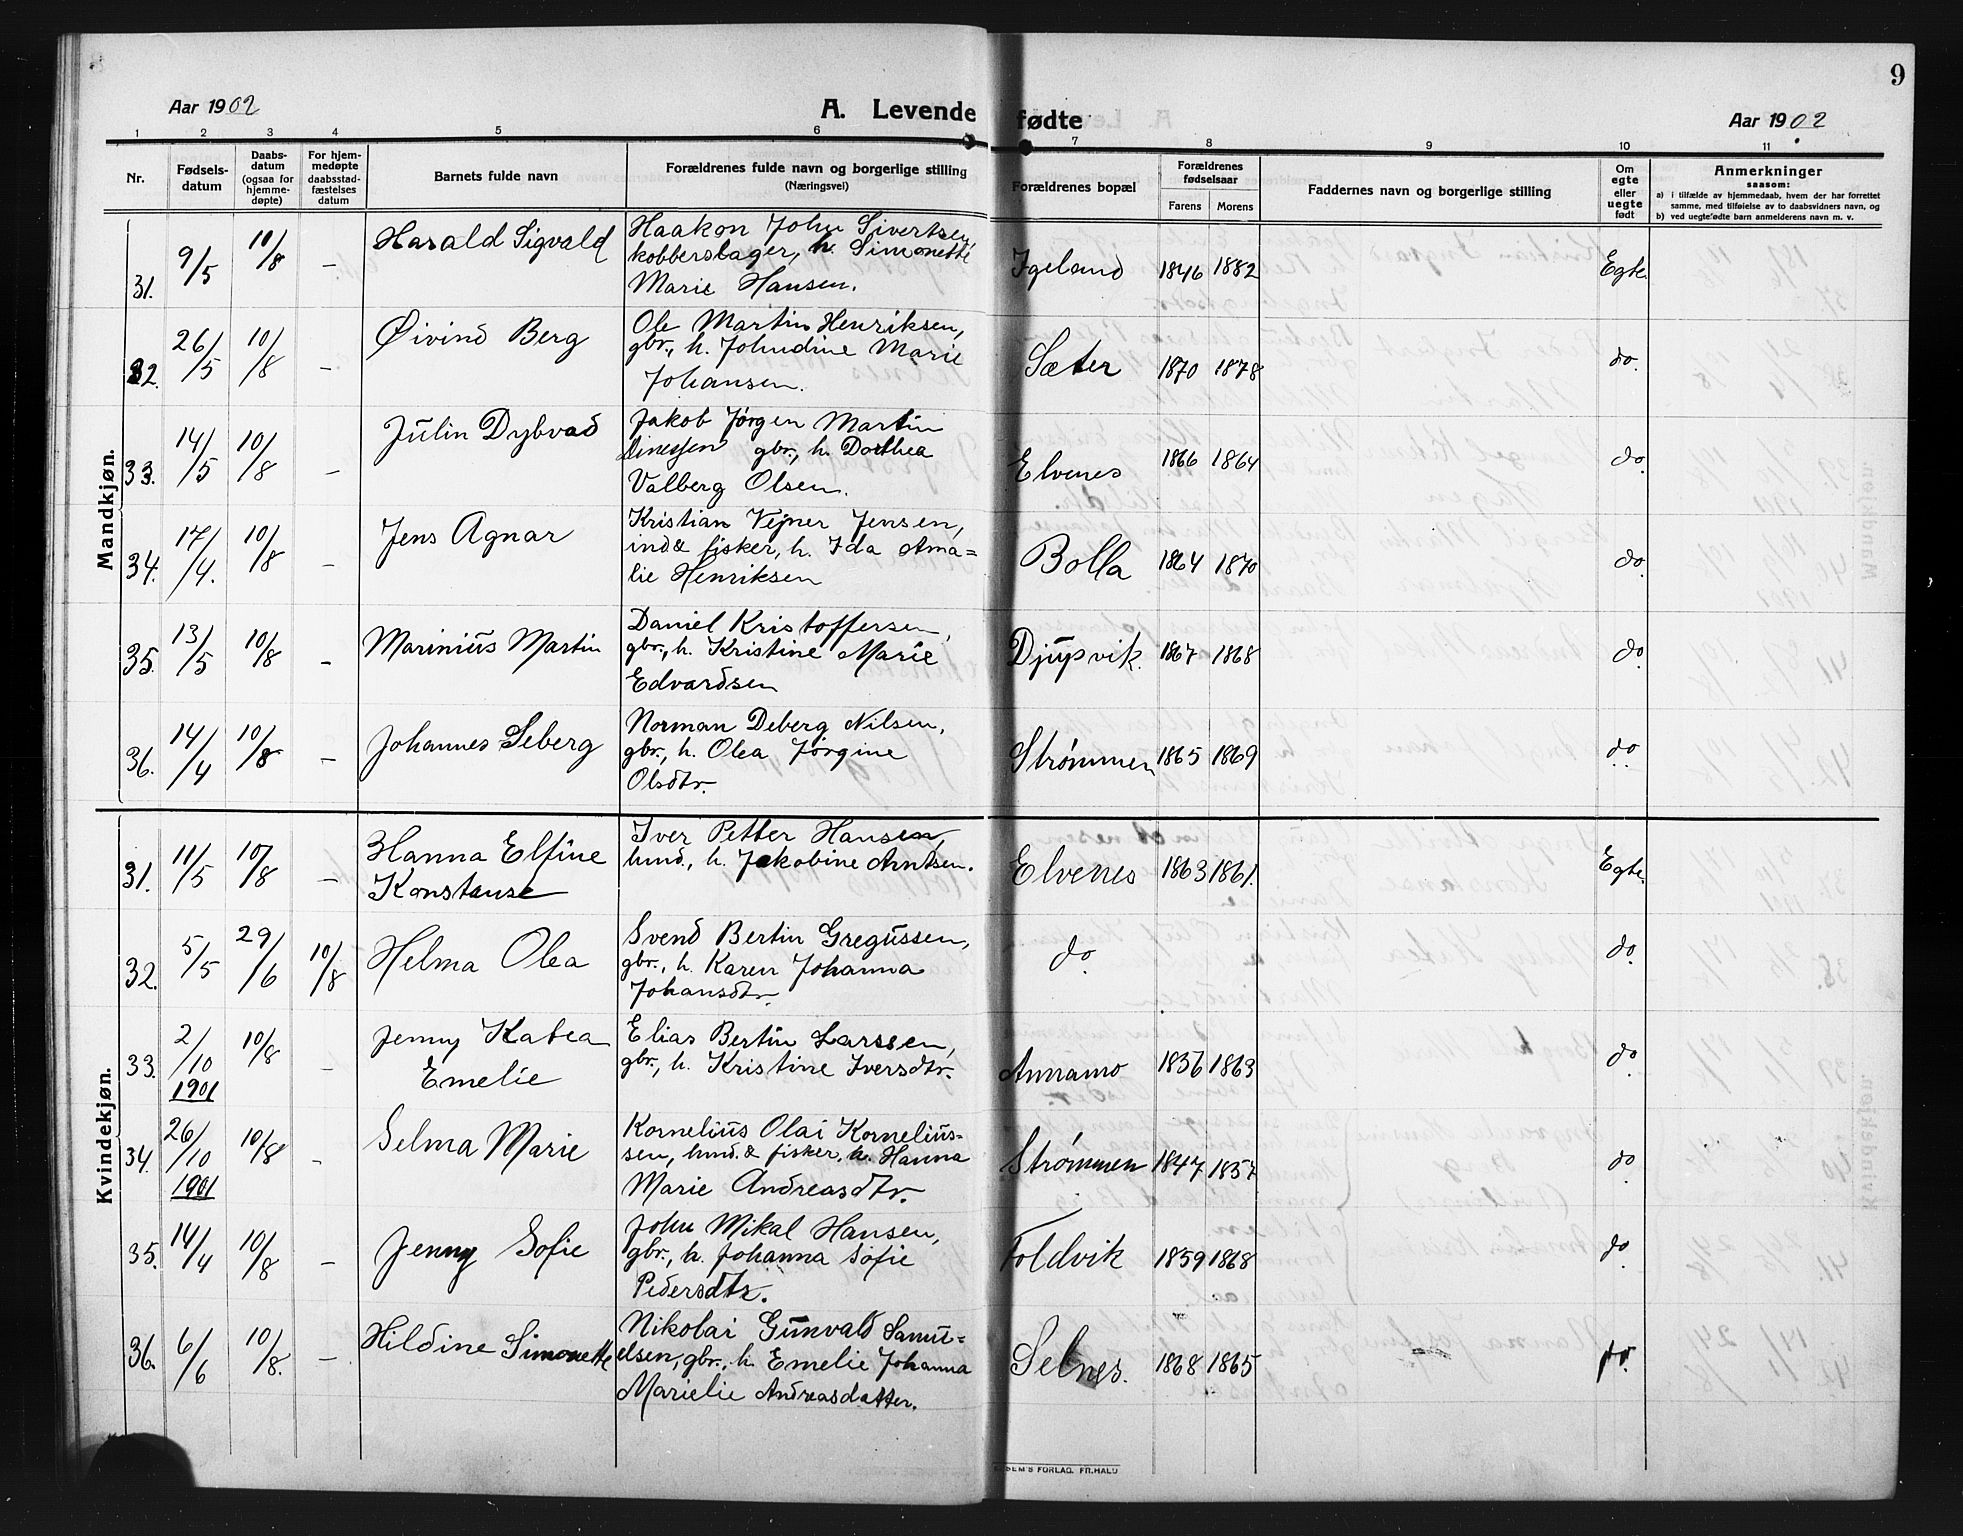 9
Aar 1902
A. Levende
fødte
Aar 1902
1 2 3 4 5 6 7 8 9 10 11
Nr.
Fødsels-
datum
Daabs-
datum
(ogsaa for
hjemme-
døpte)
For hjem-
medøpte
daabsstad-
fæstelses
datum
Barnets fulde navn
Forældrenes fulde navn og borgerlige stilling
(Næringsvei)
Forældrenes bopæl
Forældrenes
fødselsaar
Farens Morens
Faddernes navn og borgerlige stilling
Om
egte
eller
uegte
født
Anmerkninger
saasom:
a) i tilfælde av hjemmedaab, hvem der har forrettet
samme, med tilføielse av to daabsvidners navn, og
b) ved uegtefødte barn anmelderens navn m. v.
Mandkjøn.
31. 9/5 10/8 – Harald Sigvald
Haakon John Sivertsen,
kobberslager, h. Simonette
Marie Hansen.
Igeland 1846 1882 Egte.
32. 26/5 10/8 – Øivind Berg
Ole Martin Henriksen,
gbr., h. Johndine Marie
Johansen.
Sæter 1870 1878 do.
33. 14/5 10/8 – Julin Dybvad
Jakob Jørgen Martin
Dinessen gbr., h. Dorthea
Valberg Olsen.
Elvenes 1866 1864 do.
34. 17/4. 10/8 – Jens Agnar
Kristian Vejner Jensen,
ind & fisker, h. Ida Ama=
lie Henriksen
Bolla 1864 1870 do.
35. 13/5 10/8 – Marinius Martin
Daniel Kristoffersen,
gbr., h. Kristine Marie
Edvardsen
Djupvik. 1867 1868 do.
36. 14/4 10/8 – Johannes Seberg
Norman Deberg Nilsen,
gbr., h. Olea Jørgine
Olsdtr.
Strømmen 1865 1869 do.
Kvindekjøn.
31. 11/5 10/8 – Hanna Elfine
Konstanse
Iver Petter Hansen,
hmd., h. Jakobine Arntsen.
Elvenes 1863 1861. Egte.
32. 5/5 29/6 10/8 Helma Olea
Svend Bertin Gregussen,
gbr., h. Karen Johanna
Johansdtr.
do. do.
33. 2/10 1901 10/8 – Jenny Katea
Emelie
Elias Bertin Larssen,
gbr., h. Kristine Iversdtr.
Annamo 1856 1863 do.
34. 26/10 1901 10/8 – Selma Marie
Kornelius Olai Kornelius-
sen, hmd. & fisker, h. Hanna
Marie Andreasdtr.
Strømmen 1847 1857 do.
35. 14/4 10/8 – Jenny Sofie
John Mikal Hansen,
gbr., h. Johanna Sofie
Pedersdtr.
Foldvik 1859 1868 do.
36. 6/6 10/8. – Hildine Simonette
Nikolai Gunvald Samu=
elsen, gbr., h. Emelie Johanna
Marielie Andreasdatter.
Selnes. 1868 1865 do.
SEM'S FORLAG. FR. HALD